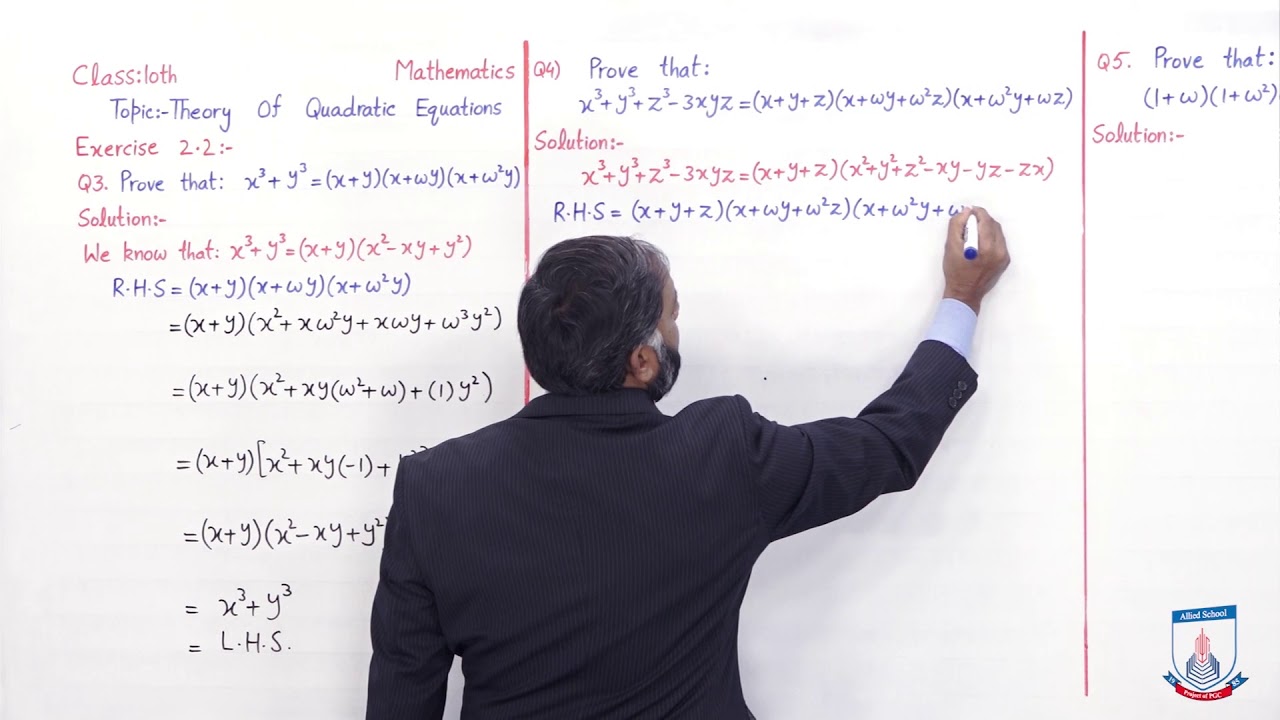 Class:10th Mathematics
Topic:-Theory Of Quadratic Equations
Exercise 2.2:-
Q3. Prove that: x³+y³=(x+y)(x+ωy)(x+ω²y)
Solution:-
We know that: x³+y³=(x+y)(x²-xy+y²)
R.H.S=(x+y)(x+ωy)(x+ω²y)
=(x+y)(x²+xω²y+xωy+ω³y²)
=(x+y)(x²+xy(ω²+ω)+(1)y²)
=(x+y)[x²+xy(-1)+
=(x+y)(x²-xy+y²
= x³+y³
= L.H.S.
Q4) Prove that:
x³+y³+z³-3xyz=(x+y+z)(x+ωy+ω²z)(x+ω²y+ωz)
Solution:-
x³+y³+z³-3xyz=(x+y+z)(x²+y²+z²-xy-yz-zx)
R.H.S=(x+y+z)(x+ωy+ω²z)(x+ω²y+ω
Q5. Prove that:
(1+ω)(1+ω²)
Solution:-
Allied School
19 85
Project of PGC